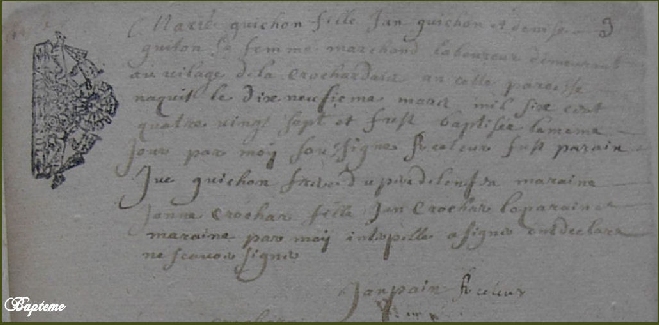 Marie guichon fille Jan guichon et denise 3
guiton sa femme marchand laboureur demeurant
au vilage de la Crochardais an cette paroisse
naquit le dix neufieme mars mil six cent
quatre vingt sept et fust baptisée la mesme
Jour par moy soussigné fust parain
Juc guichon frere du pere de lenfan maraine
Janne Crochar fille Jan Crochar le parain et
maraine par moy intepelle a signer ont declaré
ne scavoir signer
Jan pain
Bapteme